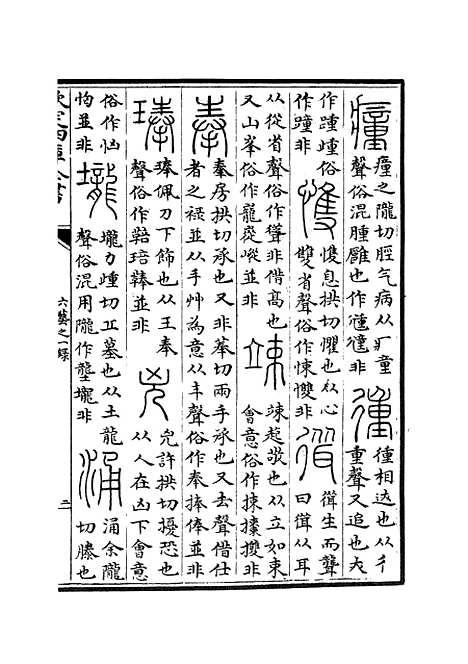 瘇
瘇之隴切脛气病从疒童
聲俗混腫䐯也作尰㣫非
徸
徸相迭也从彳
重聲又追也夫
作踵歱俗
作蹱非
愯
愯息拱切懼也从心
雙省聲俗作悚㦼非
生而聾
曰 从耳
从從省聲俗作聳非借高也
又山峯俗作巃嵸嵷並非
竦
竦 敬也从立如束
會意俗作捒 㩳並非
奉
奉房拱切承也又非菶切兩手承也又去聲借仕
者之禄並从手艸為意从丰聲俗作奉捧俸並非
琫
琫佩刀下飾也从王奉
聲俗作鞛琣 並非
兇
兇許拱切擾恐也
从人在凶下會意
俗作忷
恟並非
壠
壠力歱切丘墓也从土龍
聲俗混用隴作壟壠非
涌
涌余隴
切滕也
欽定四庫全書
六藝之一録
二